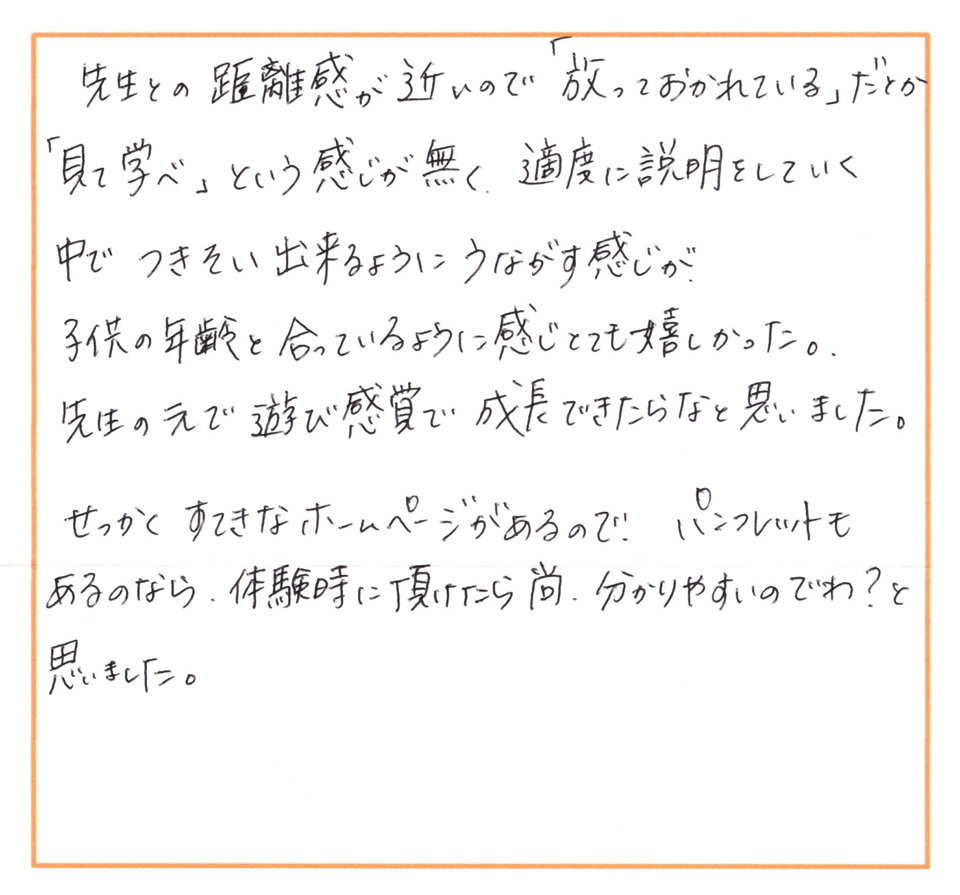 先生との距離感が近いので「放っておかれている」だとか
「見て学べ」という感じが無く、適度に説明をしていく
中で つきそい出来るようにうながす感じが、
子供の年齢と合っているように感じとても嬉しかった。
先生の元で遊び感覚で成長できたらなと思いました。
せっかくすてきなホームページがあるので、パンフレットも
あるのなら、体験時に頂けたら尚、分かりやすいのでわ?と
思いました。